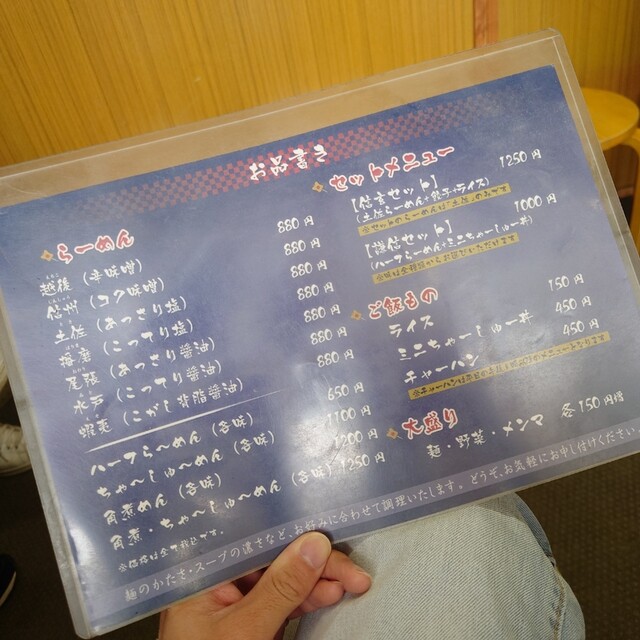 お品書き
らーめん
越後（辛味噌） 880円
信州（コク味噌） 880円
土佐（あっさり塩） 880円
播磨（こってり塩） 880円
尾張（あっさり醤油） 880円
水戸（こってり醤油） 880円
蝦夷（こがし背脂醤油） 880円
ハーフらーめん（各味） 650円
ちゃーしゅーめん（各味） 1100円
野菜めん（各味） 1200円
野菜・ちゃーしゅーめん（各味） 1250円
※価格は全て税込です。
セットメニュー
1250円
（土佐らーめん・餃子・ライス）
1000円
（ハーフらーめん・ミニちゃーしゅー丼）
ご飯もの
ライス 150円
ミニちゃーしゅー丼 450円
チャーハン 450円
大盛り
麺・野菜・メンマ 各150円増
麺のかたさ・スープの濃さなど、お好みに合わせて調理いたします。どうぞお気軽にお申し付けください。